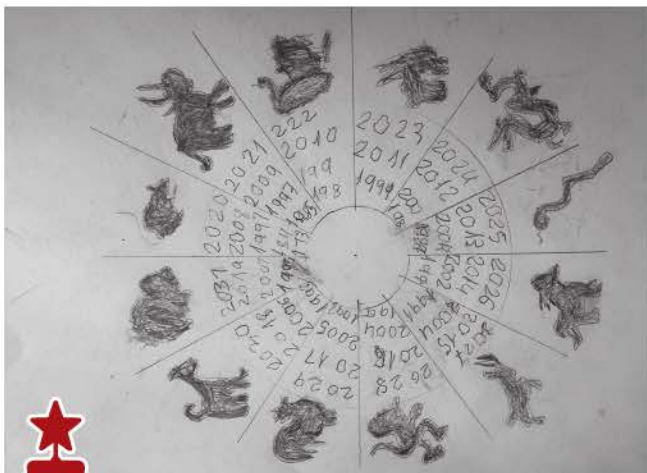 2023
2011
1999
2024
2012
200
198
2025
2013
2026
2014
2002
2027
2015
2004
2028
2016
2004
199
2029
2017
2005
2018
2006
2031
2019
2020
2008
2021
2009
1997
222
2010
199
198